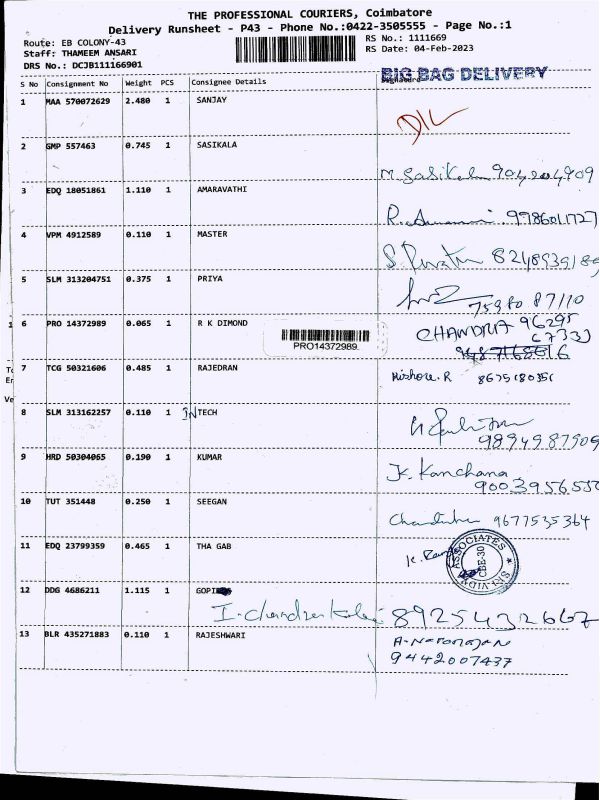 THE PROFESSIONAL COURIERS, Coimbatore
Delivery Runsheet - P43 - Phone No.:0422-3505555 - Page No.:1
Route: EB COLONY-43 RS No.: 1111669
Staff: THAMEEM ANSARI RS Date: 04-Feb-2023
DRS No.: DCJB111166901
BIG BAG DELIVERY
S No Consignment No Weight PCS Consignee Details Signature
1 MAA 570072629 2.480 1 SANJAY
2 GMP 557463 0.745 1 SASIKALA
M. Sasikala
3 EDQ 18051861 1.110 1 AMARAVATHI
9786011727
4 VPM 4912589 0.110 1 MASTER
5 SLM 313204751 0.375 1 PRIYA
75980 87110
6 PRO 14372989 0.065 1 R K DIMOND CHANDRA 96295
67333
PRO14372989.
7 TCG 50321606 0.485 1 RAJEDRAN
Kishore. R
8 SLM 313162257 0.110 1 INTECH
9894987909
9 HRD 50304065 0.190 1 KUMAR
K. Kanchana
10 TUT 351448 0.250 1 SEEGAN
9677535364
11 EDQ 23799359 0.465 1 THA GAB
ASSOCIATES
CBE-30
SRI VIDYA
12 DDG 4686211 1.115 1 GOPI
8925432667
13 BLR 435271883 0.110 1 RAJESHWARI
A. Natarajan
9442007437